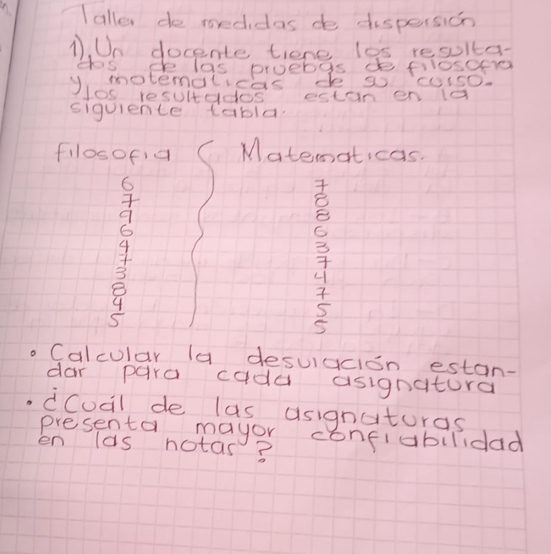 Taller de medidas de dispersión
1). Un docente tiene los resulta-
dos de las pruebas de filosofia
y matematicas de su curso.
y los resultados estan en la
siguiente tabla.
filosofia Matematicas.
6 7
7 8
9 8
6 6
4 3
7 7
3 4
8 7
4 5
5 5
• Calcular la desviación estan-
dar para cada asignatura
• ¿Cuál de las asignaturas
presenta mayor confiabilidad
en las notas?